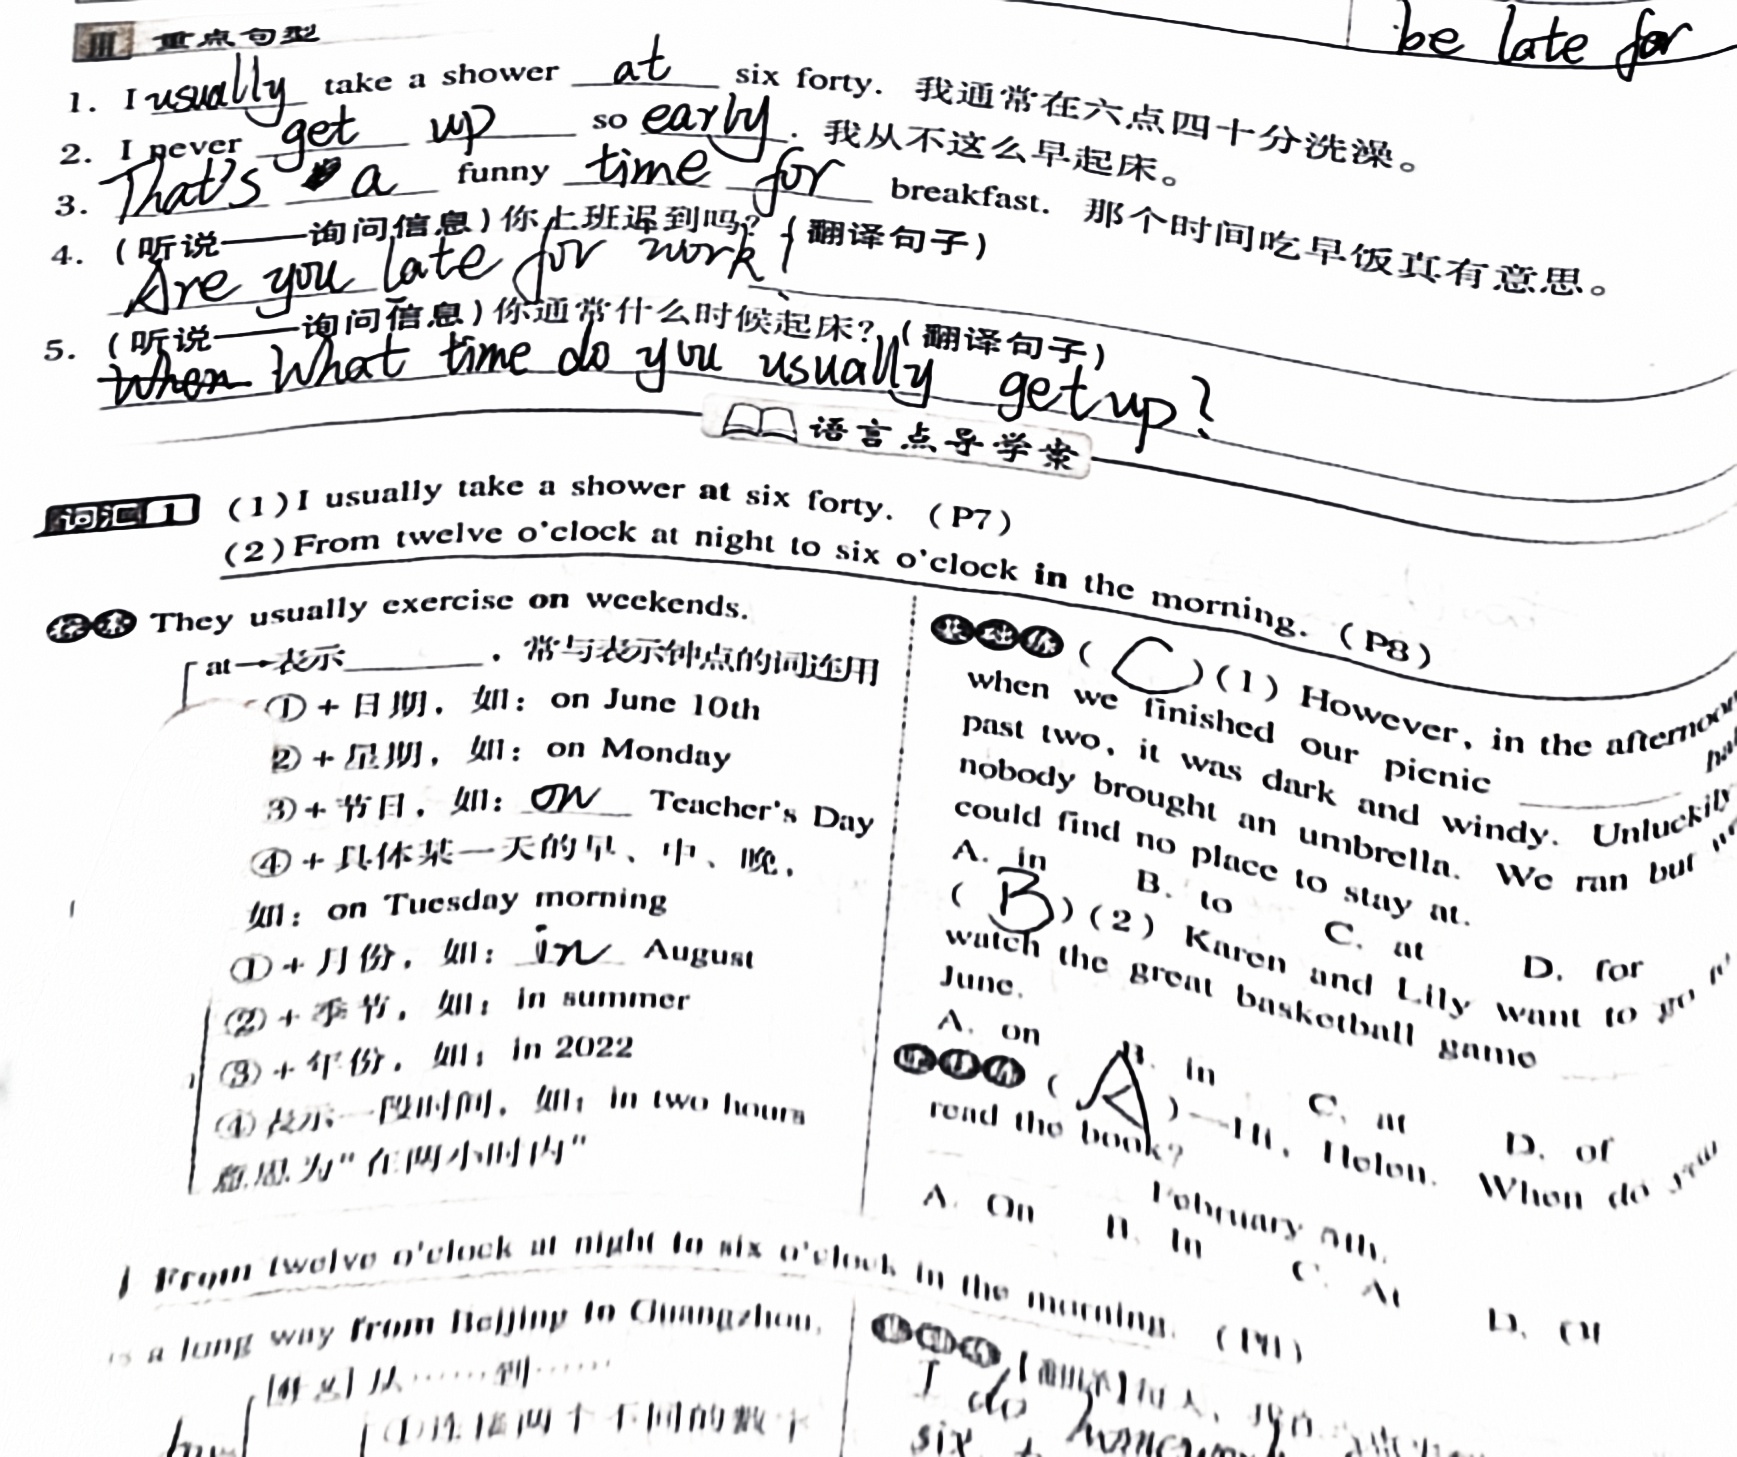 be late for
Ⅲ 重点句型
1. I usually take a shower at six forty. 我通常在六点四十分洗澡。
2. I never get up so early. 我从不这么早起床。
3. That's a funny time for breakfast. 那个时间吃早饭真有意思。
4. (听说——询问信息)你上班迟到吗? (翻译句子)
Are you late for work?
5. (听说——询问信息)你通常什么时候起床? (翻译句子)
When What time do you usually get up?
语言点导学案
词汇1 (1)I usually take a shower at six forty. (P7)
(2)From twelve o'clock at night to six o'clock in the morning. (P8)
探索 They usually exercise on weekends.
at→表示______，常与表示钟点的词连用
①+日期，如：on June 10th
②+星期，如：on Monday
③+节日，如：on Teacher's Day
④+具体某一天的早、中、晚，
如：on Tuesday morning
①+月份，如：in August
②+季节，如：in summer
③+年份，如：in 2022
④表示一段时间，如：in two hours
意思为"在两小时内"
基础练 (C)(1) However, in the afternoon
when we finished our picnic ______
past two, it was dark and windy. Unluckily
nobody brought an umbrella. We ran but
could find no place to stay at.
A. in B. to C. at D. for
(B)(2) Karen and Lily want to go
watch the great basketball game ______
June.
A. on B. in C. at D. of
(A)—Hi, Helen. When do you
read the book?
February 5th.
A. On B. In C. At D. Of
From twelve o'clock at night to six o'clock in the morning.
is a long way from Beijing to Guangzhou.
从……到……
①连接两个不同的数字
I do
six